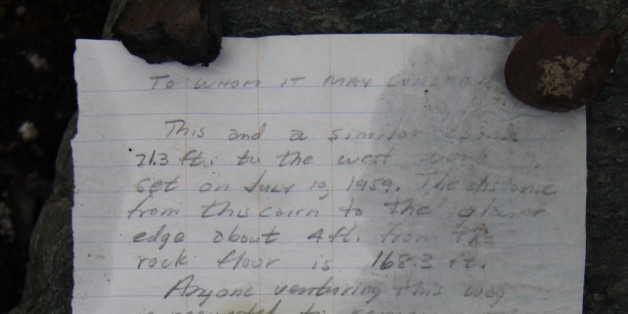 TO WHOM IT MAY CONCERN
This and a similar
21.3 ft. to the west were
set on July 10, 1959. The distance
from this cairn to the glacier
edge about 4 ft. from the
rock floor is 168.3 ft.
Anyone venturing this way
is requested to